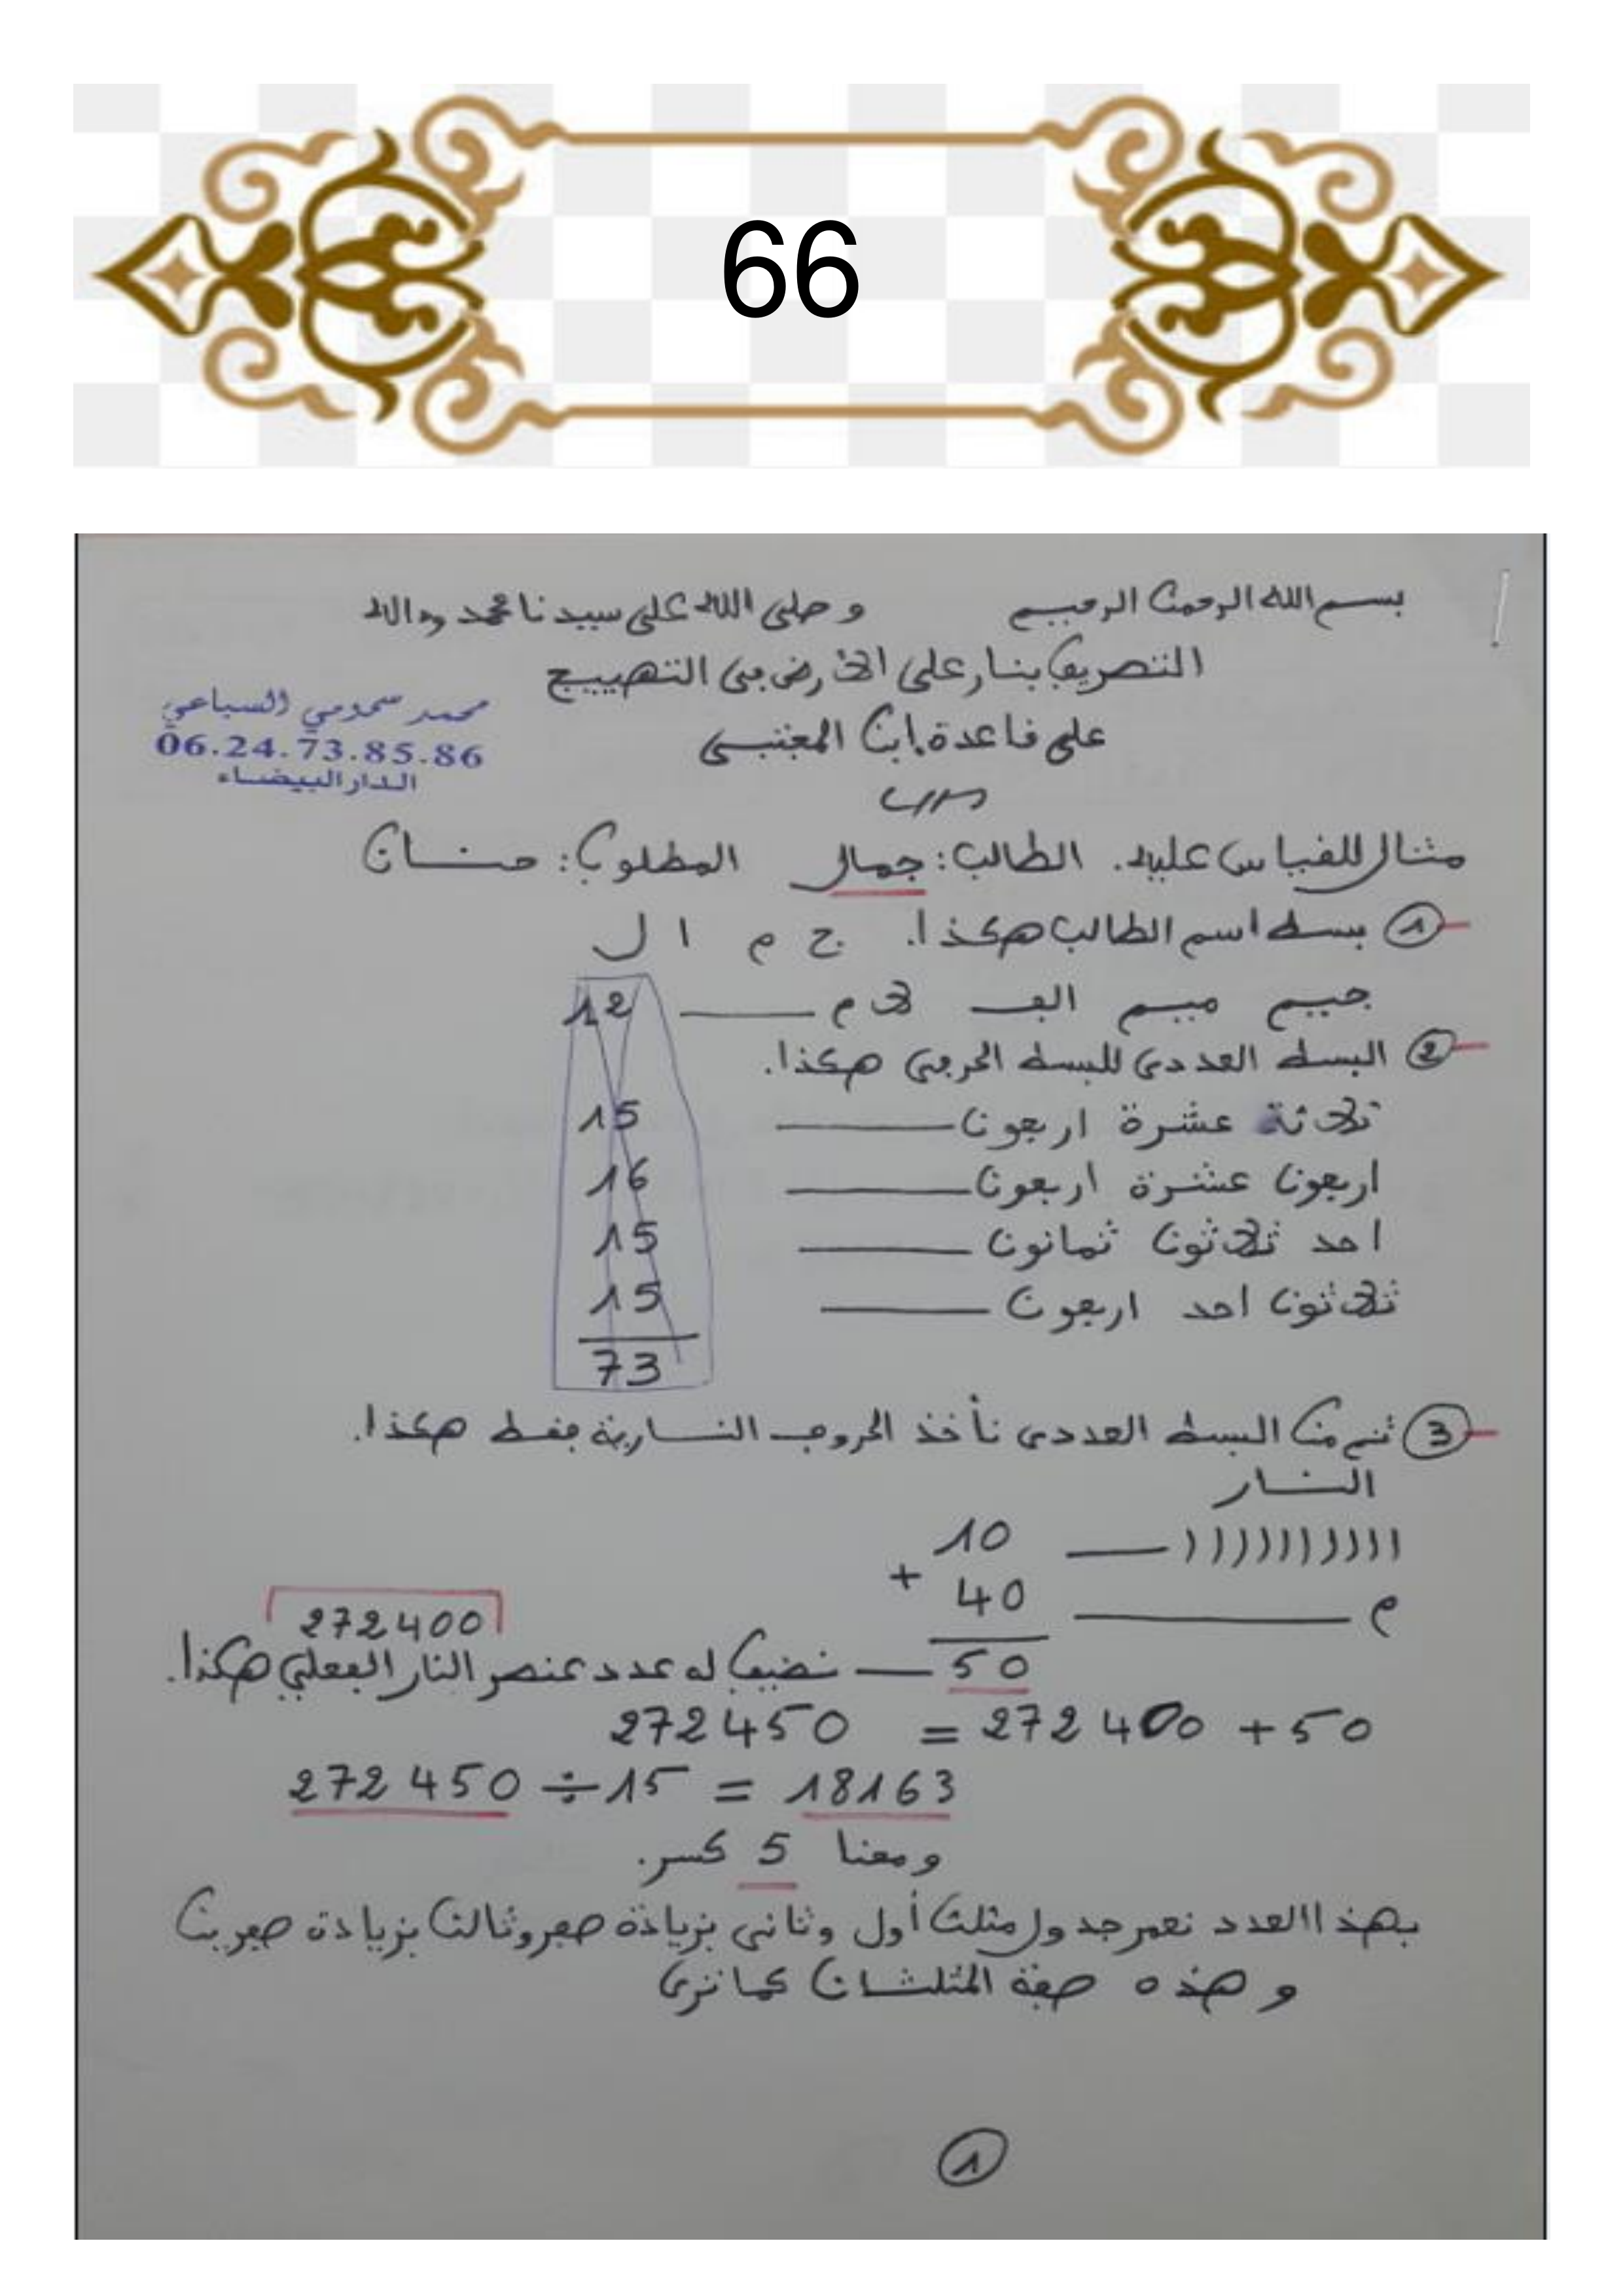 66
بسم الله الرحمن الرحيم وصلى الله على سيدنا محمد وءاله
التصريف بنار على الأرض في التهييج
محمد سحومي السباعي
06.24.73.85.86
الدار البيضاء
على قاعدة ابن المغتبسي
مثال للقياس عليه. الطالب: جمال المطلوب: حنان
1 بسط اسم الطالب هكذا. ج م ا ل
جيم ميم الف لام 12
2 البسط العددي للبسط الحرفي هكذا.
ثلاثة عشرة اربعون 15
اربعون عشرة اربعون 16
احد ثلاثون ثمانون 15
ثلاثون احد اربعون 15
73
3 ثم من البسط العددي نأخذ الحروف النارية فقط هكذا.
النار
ا ا ا ا ا ا ا ا ا ا 10
+
م 40
272400
50 نضيف له عدد عنصر النار الفعلي هكذا.
272450 = 272400 + 50
272450 ÷ 15 = 18163
ومعنا 5 كسر.
بهذا العدد نعمر جدول مثلث أول وثاني بزيادة صفر وثالث بزيادة صفرين
وهذه صفة المثلثان كما ترى
1